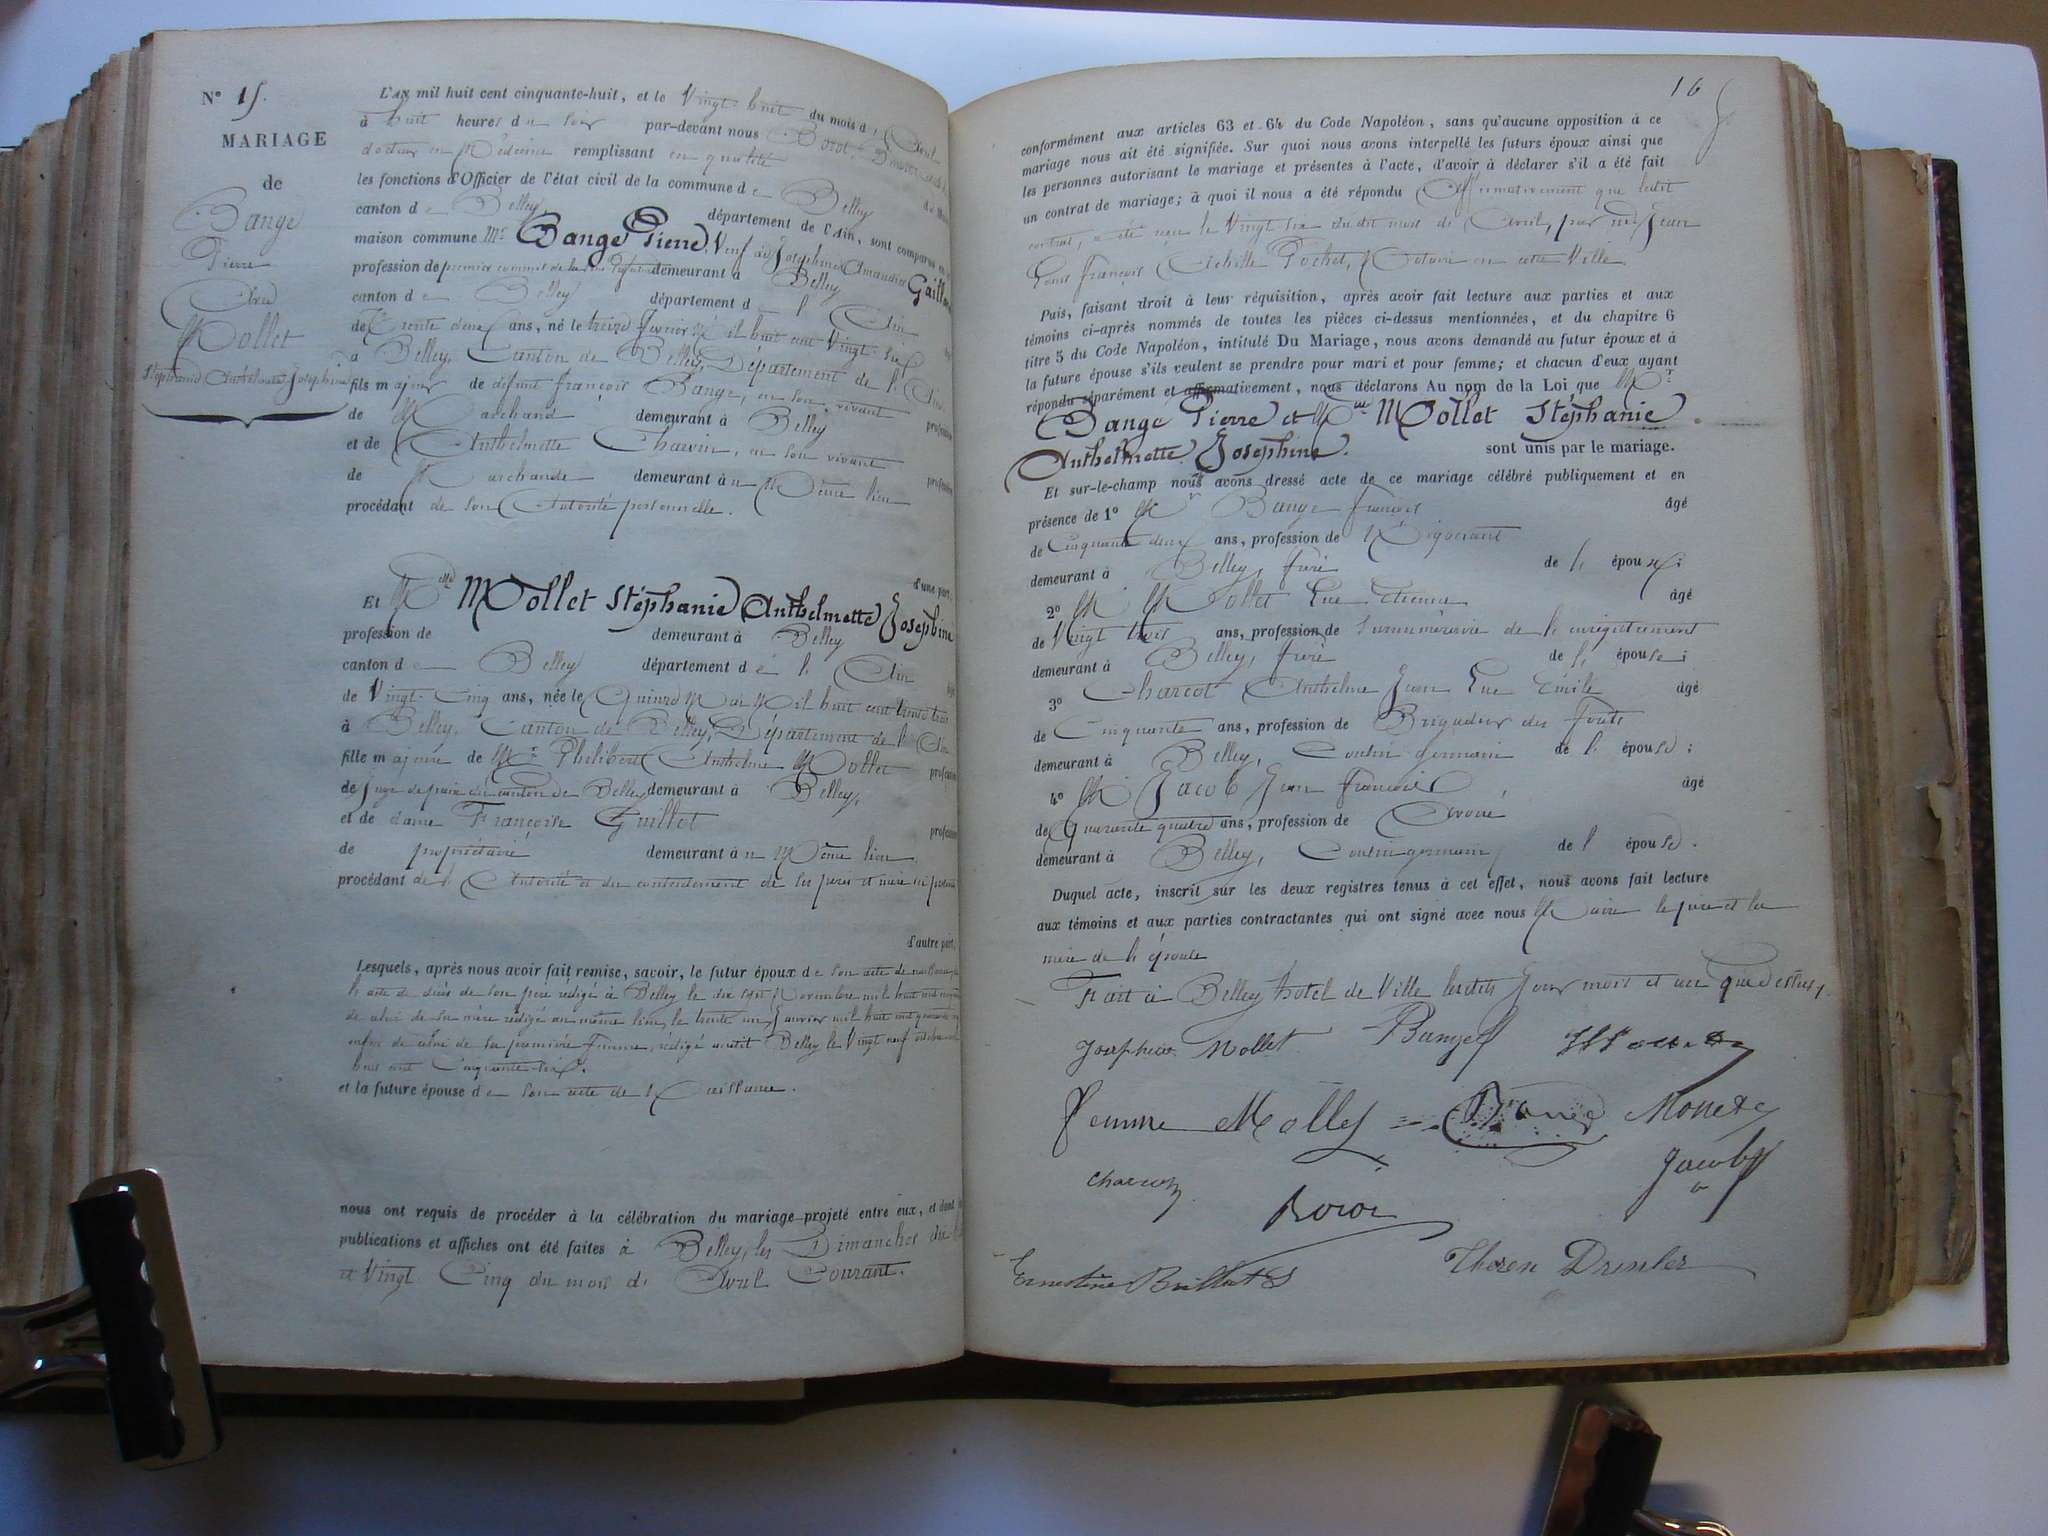 N° 15.
MARIAGE
de
Bange
Pierre
Avec
Mollet
Stéphanie Anthelmette Joséphine
L'AN mil huit cent cinquante-huit, et le Vingt-huit du mois d' Avril
à huit heures du soir par-devant nous
docteur en Médecine remplissant en qualité
les fonctions d'Officier de l'état civil de la commune de Belley
canton de Belley, département de l'Ain, sont comparus en
maison commune Mr Bange Pierre, Veuf de Joséphine Amandine
profession de premier commis de la demeurant à Belley
canton de Belley département de l'Ain
de Trente deux ans, né le treize février Mil huit cent Vingt-six
à Belley, Canton de Belley, Département de l'Ain
fils majeur de défunt françois Bange, en son vivant
de Marchand demeurant à Belley
et de Anthelmette Charvin, en son vivant
de Marchande demeurant au Même lieu
procédant de son Autorité personnelle.
d'une part,
Et Melle Mollet Stéphanie Anthelmette Joséphine
profession de demeurant à Belley
canton de Belley département de l'Ain
de Vingt-Cinq ans, née le Quinze Mai Mil huit cent trente trois
à Belley, Canton de Belley, Département de l'Ain
fille majeure de Mr Philibert Anthelme Mollet
de Juge de paix du canton de Belley demeurant à Belley,
et de dame Françoise Guillot
de propriétaire demeurant au Même lieu
procédant de l'Autorité et du consentement de ses père et mère ici présents
d'autre part,
Lesquels, après nous avoir fait remise, savoir, le futur époux de son acte de naissance,
de acte de décès de son père rédigé à Belley le dix sept Novembre mil huit cent
de celui de sa mère rédigé au même lieu, le trente un Janvier mil huit cent quarante
enfin de celui de sa première femme, rédigé audit Belley le Vingt neuf
huit cent Cinquante-six.
et la future épouse de son acte de Naissance.
nous ont requis de procéder à la célébration du mariage projeté entre eux, et dont
publications et affiches ont été faites à Belley, les Dimanches dix huit
et Vingt Cinq du mois d' Avril Courant.
16
conformément aux articles 63 et 64 du Code Napoléon, sans qu'aucune opposition à ce
mariage nous ait été signifiée. Sur quoi nous avons interpellé les futurs époux ainsi que
les personnes autorisant le mariage et présentes à l'acte, d'avoir à déclarer s'il a été fait
un contrat de mariage; à quoi il nous a été répondu Affirmativement que ledit
contrat, a été reçu le Vingt six dudit mois de Avril, par me Jean
Louis françois Achille Pochet, Notaire en cette Ville
Puis, faisant droit à leur réquisition, après avoir fait lecture aux parties et aux
témoins ci-après nommés de toutes les pièces ci-dessus mentionnées, et du chapitre 6
titre 5 du Code Napoléon, intitulé Du Mariage, nous avons demandé au futur époux et à
la future épouse s'ils veulent se prendre pour mari et pour femme; et chacun d'eux ayant
répondu séparément et affirmativement, nous déclarons Au nom de la Loi que Mr
Bange Pierre et Melle Mollet Stéphanie
Anthelmette Joséphine. sont unis par le mariage.
Et sur-le-champ nous avons dressé acte de ce mariage célébré publiquement et en
présence de 1° Mr Bange françois âgé
de Cinquante deux ans, profession de Négociant
demeurant à Belley, frère de l' époux;
2° Mr Mollet Luc Etienne âgé
de Vingt trois ans, profession de Surnuméraire de l'enregistrement
demeurant à Belley, frère de l' épouse;
3° Charcot Anthelme Jean Luc Emile âgé
de Cinquante ans, profession de Brigadier des forêts
demeurant à Belley, Cousin germain de l' épouse;
4° Mr Jacob Jean François, âgé
de Quarante quatre ans, profession de Avoué
demeurant à Belley, Cousin germain, de l' épouse.
Duquel acte, inscrit sur les deux registres tenus à cet effet, nous avons fait lecture
aux témoins et aux parties contractantes qui ont signé avec nous Maire le père et la
mère de l'épouse
Fait à Belley hotel de Ville lesdits Jour mois et an que dessus,
Joséphine Mollet Bange
femme Mollet Bange Mollet
Charcot Jacob
Ernestine Brillat